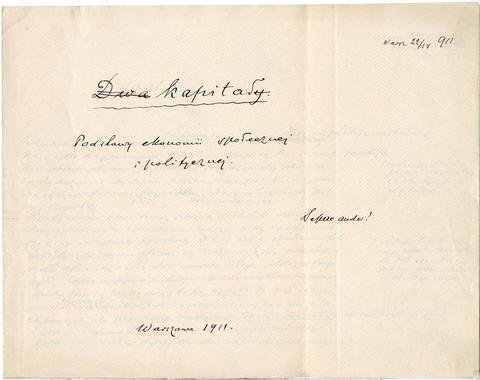 Warsz. 22/IV 911.
Dwa kapitały.
Podstawy ekonomii społecznej
i politycznej.
Sapere aude!
Warszawa 1911.